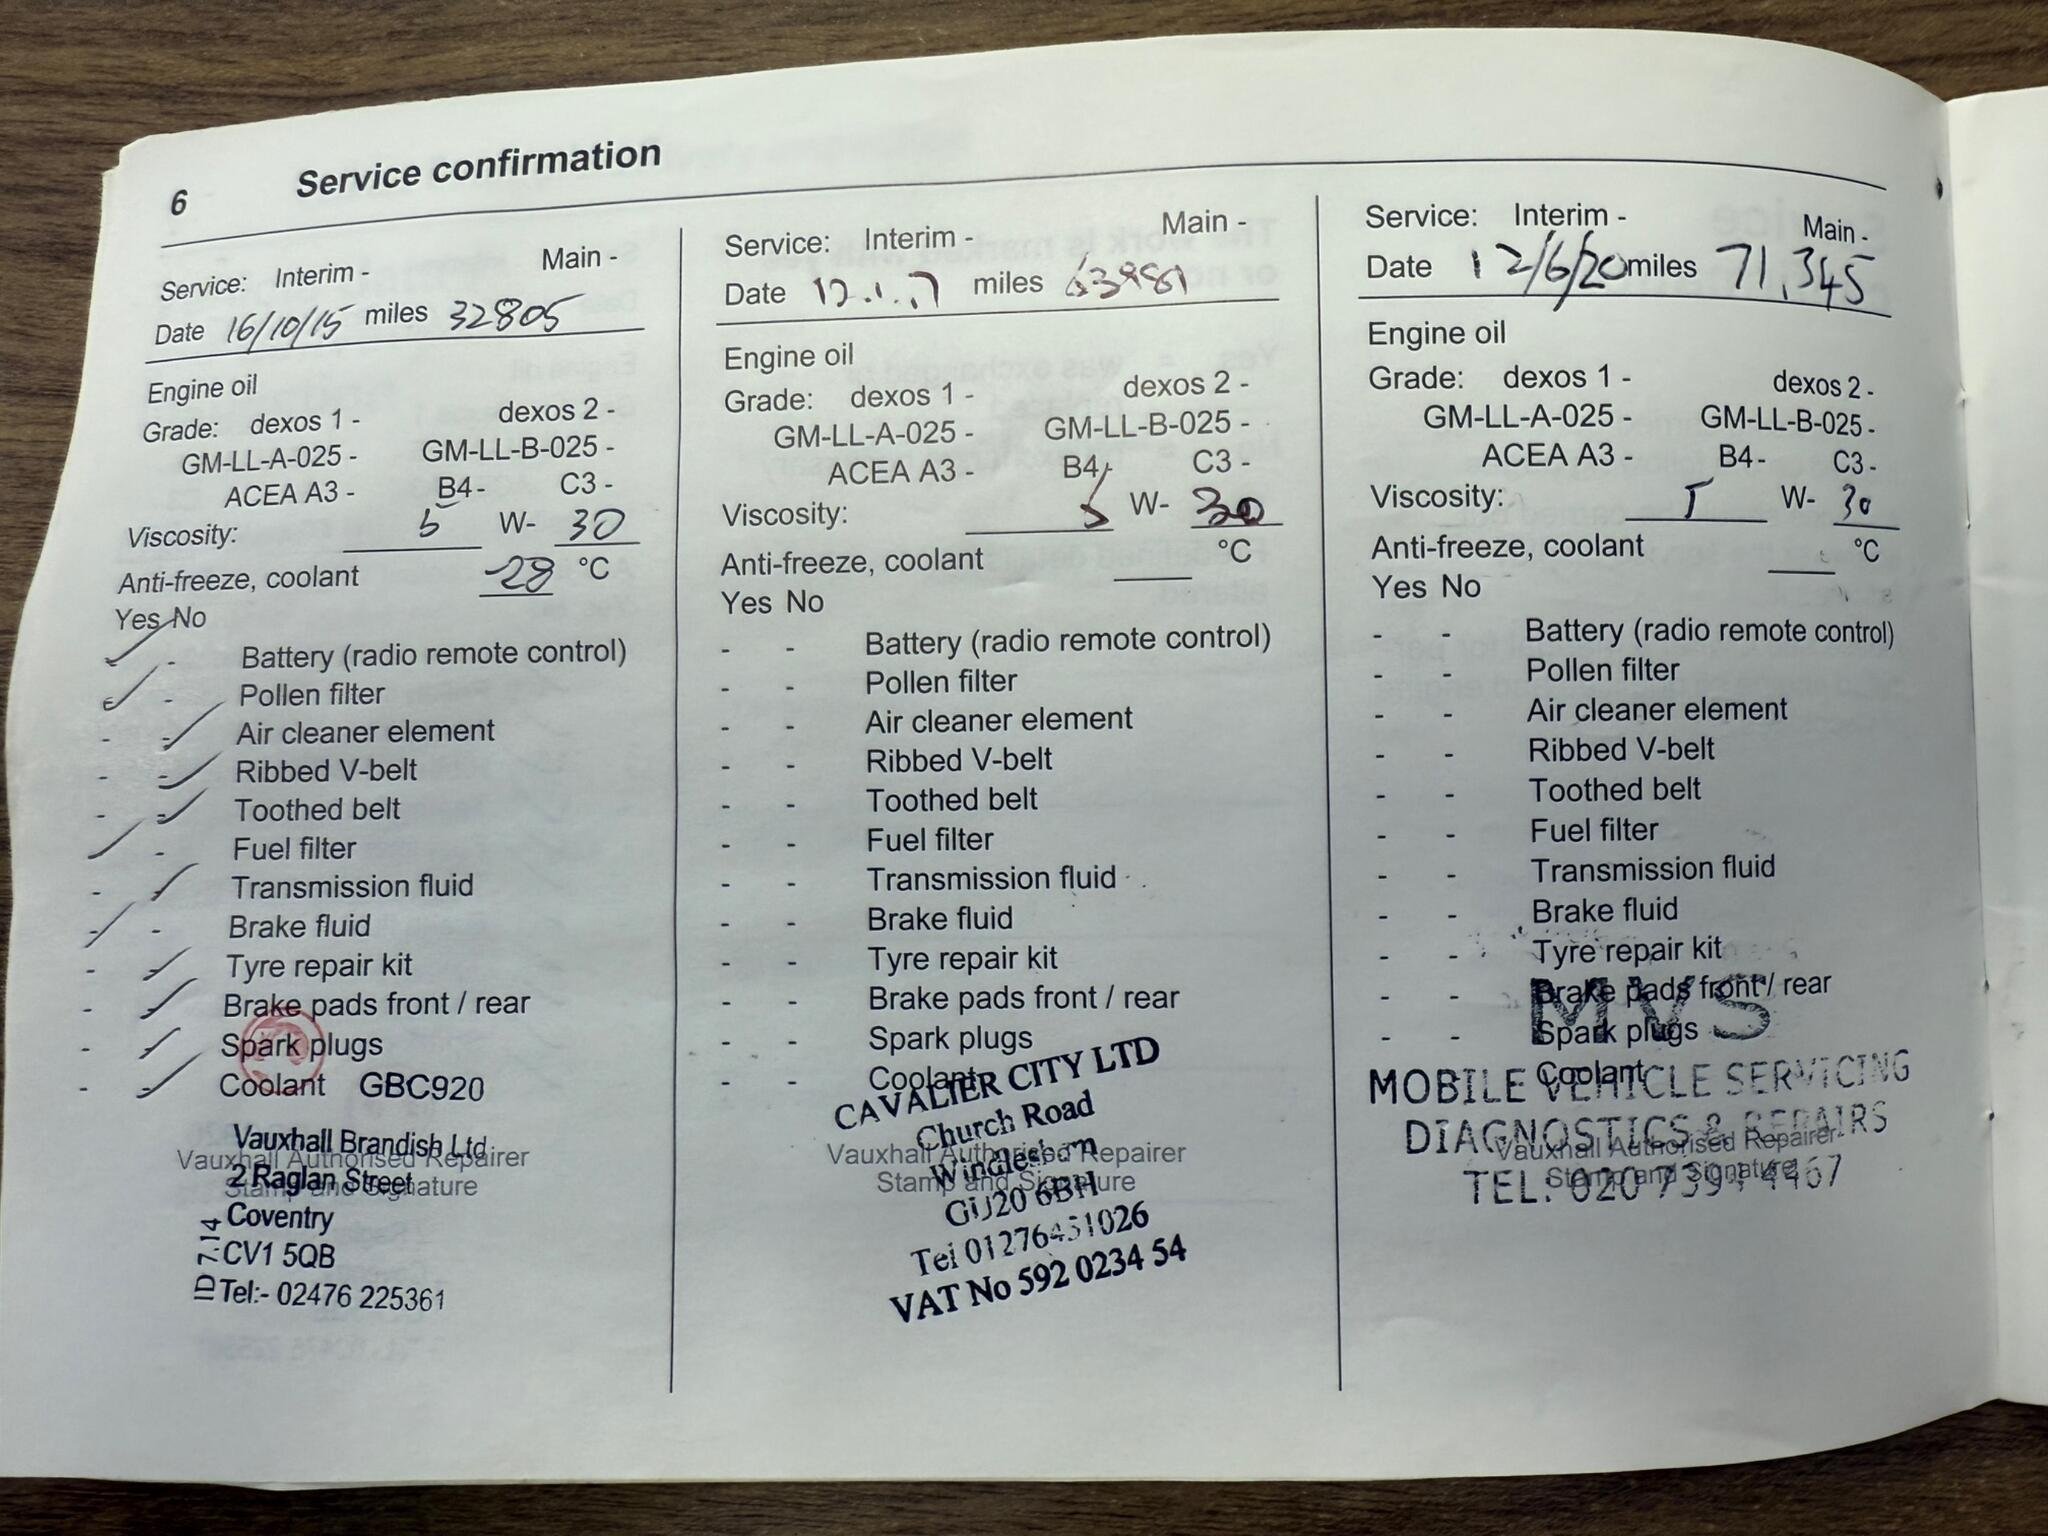 6 Service confirmation
Service: Interim - Main -
Date 16/10/15 miles 32805
Engine oil
Grade: dexos 1 - dexos 2 -
GM-LL-A-025 - GM-LL-B-025 -
ACEA A3 - B4 - C3 -
Viscosity: 5 W- 30
Anti-freeze, coolant -28 °C
Yes No
- Battery (radio remote control)
- Pollen filter
- - Air cleaner element
- - Ribbed V-belt
- - Toothed belt
- Fuel filter
- - Transmission fluid
- - Brake fluid
- - Tyre repair kit
- - Brake pads front / rear
- - Spark plugs
- - Coolant GBC920
Vauxhall Brandish Ltd
Vauxhall Authorised Repairer
2 Raglan Street
Stamp and Signature
Coventry
CV1 5QB
Tel:- 02476 225361
ID 7:14
Service: Interim - Main -
Date 12.1.17 miles 63981
Engine oil
Grade: dexos 1 - dexos 2 -
GM-LL-A-025 - GM-LL-B-025 -
ACEA A3 - B4 C3 -
Viscosity: 5 W- 30
Anti-freeze, coolant °C
Yes No
- - Battery (radio remote control)
- - Pollen filter
- - Air cleaner element
- - Ribbed V-belt
- - Toothed belt
- - Fuel filter
- - Transmission fluid
- - Brake fluid
- - Tyre repair kit
- - Brake pads front / rear
- - Spark plugs
- - Coolant
CAVALIER CITY LTD
Church Road
Vauxhall Authorised Repairer
Windlesham
Stamp and Signature
GU20 6BH
Tel 01276451026
VAT No 592 0234 54
Service: Interim - Main -
Date 12/6/20 miles 71,345
Engine oil
Grade: dexos 1 - dexos 2 -
GM-LL-A-025 - GM-LL-B-025 -
ACEA A3 - B4 - C3 -
Viscosity: 5 W- 30
Anti-freeze, coolant °C
Yes No
- - Battery (radio remote control)
- - Pollen filter
- - Air cleaner element
- - Ribbed V-belt
- - Toothed belt
- - Fuel filter
- - Transmission fluid
- - Brake fluid
- - Tyre repair kit
- - Brake pads front / rear
MVS
- - Spark plugs
Coolant
MOBILE VEHICLE SERVICING
DIAGNOSTICS & REPAIRS
Vauxhall Authorised Repairer
Stamp and Signature
TEL: 020 4467